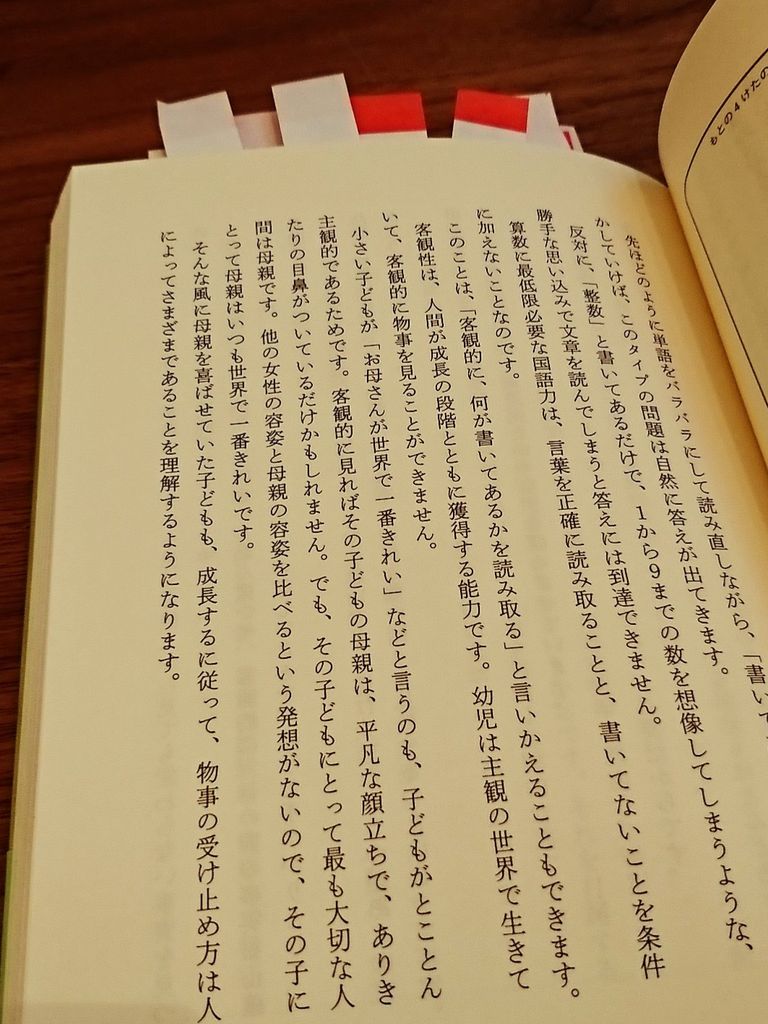 もとの4けたの
先ほどのように単語をバラバラにして読み直しながら、「書いて
かしていけば、このタイプの問題は自然に答えが出てきます。
反対に、「整数」と書いてあるだけで、1から9までの数を想像してしまうような、
勝手な思い込みで文章を読んでしまうと答えには到達できません。
算数に最低限必要な国語力は、言葉を正確に読み取ることと、書いてないことを条件
に加えないことなのです。
このことは、「客観的に、何が書いてあるかを読み取る」と言いかえることもできます。
客観性は、人間が成長の段階とともに獲得する能力です。幼児は主観の世界で生きて
いて、客観的に物事を見ることができません。
小さい子どもが「お母さんが世界で一番きれい」などと言うのも、子どもがとことん
主観的であるためです。客観的に見ればその子どもの母親は、平凡な顔立ちで、ありき
たりの目鼻がついているだけかもしれません。でも、その子どもにとって最も大切な人
間は母親です。他の女性の容姿と母親の容姿を比べるという発想がないので、その子に
とって母親はいつも世界で一番きれいです。
そんな風に母親を喜ばせていた子どもも、成長するに従って、物事の受け止め方は人
によってさまざまであることを理解するようになります。